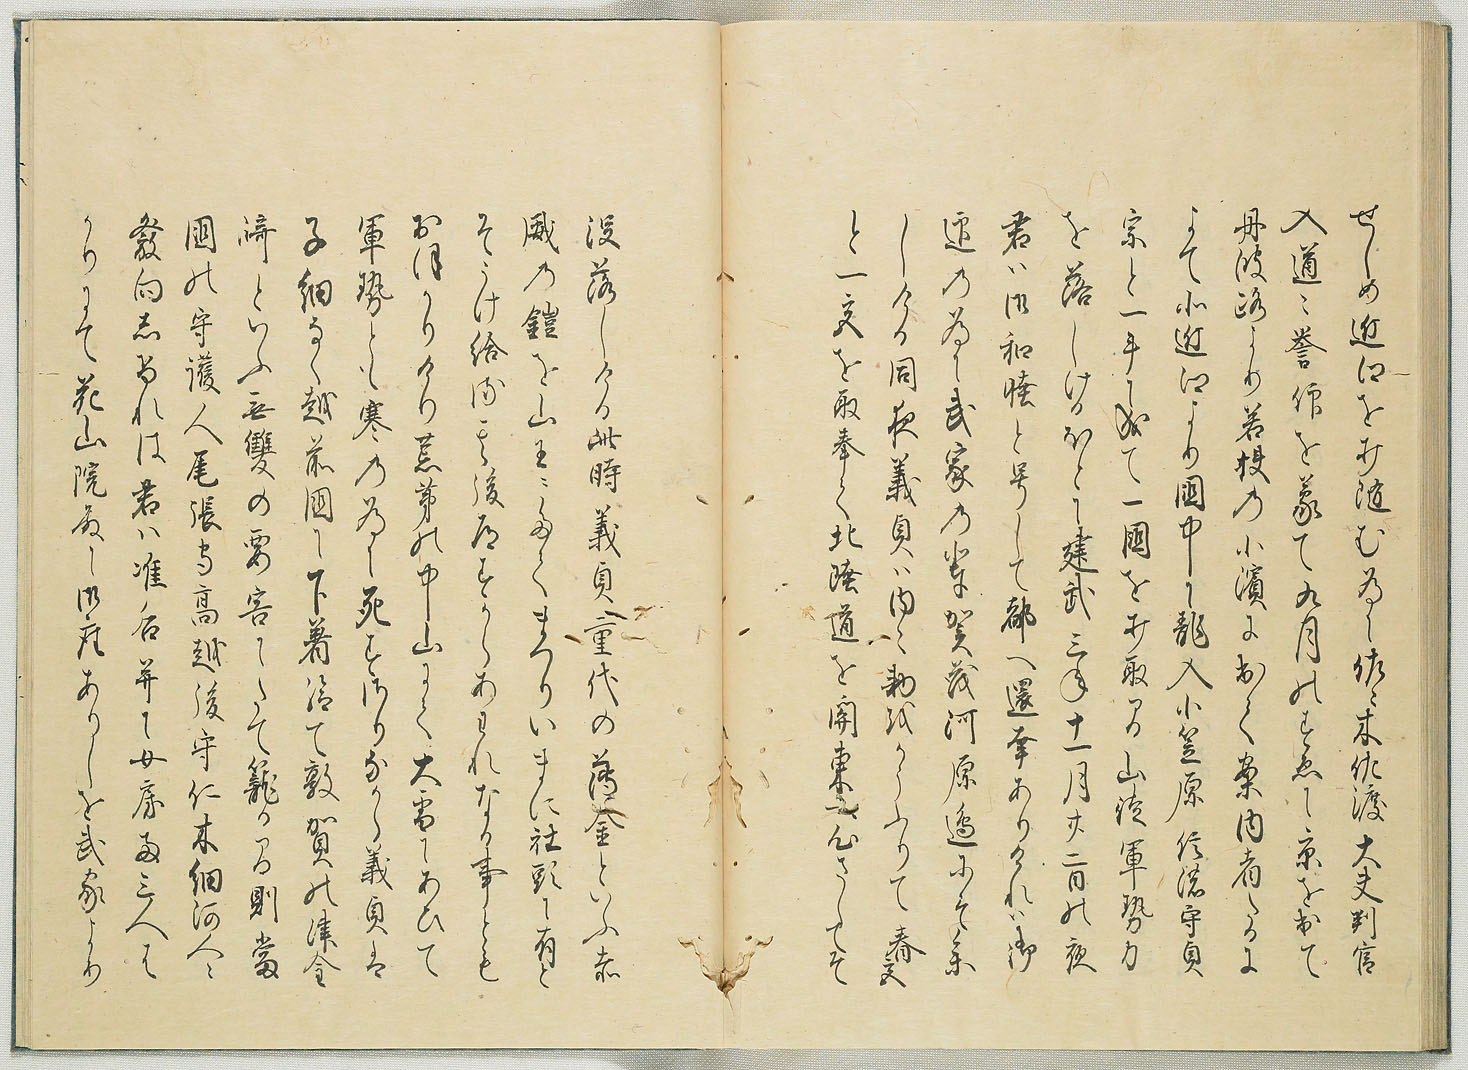 せしめ近江を打随むために佐々木佐渡大夫判官
入道々誉仰を蒙て九月のすゑに京を出て
丹波路より若狭の小濱に出く案内者たるに
よて北近江より國中に龍入小笠原信濃守貞
宗と一手に成て一國を打取る間山徒軍勢力
を落しけるほとに建武三年十一月廿二日の夜
君は御和睦と号して都へ還幸ありけれは御
迎のために武家の輩賀茂河原邊にそ参
しける同夜義貞は内々勅をかうふりて春宮
と一宮を取奉て北陸道を関東に心さしてそ
没落しける此時義貞重代の薄金といふ赤
威の鎧を山王にたてまつりいまに社頭に有と
そうけ給る其後道すからあはれなる事とも
おほかりけり荒茅の中山にて大雪にあひて
軍勢とも寒のために死すさりなから義貞は
子細なく越前國に下着給て敦賀の津金
崎といふ無雙の要害にたて籠る間則當
國の守護人尾張守高越後守仁木細河人々
發向しけれは君は准后并に女房両三人は
かりにて花山院殿に御座ありしを武家より